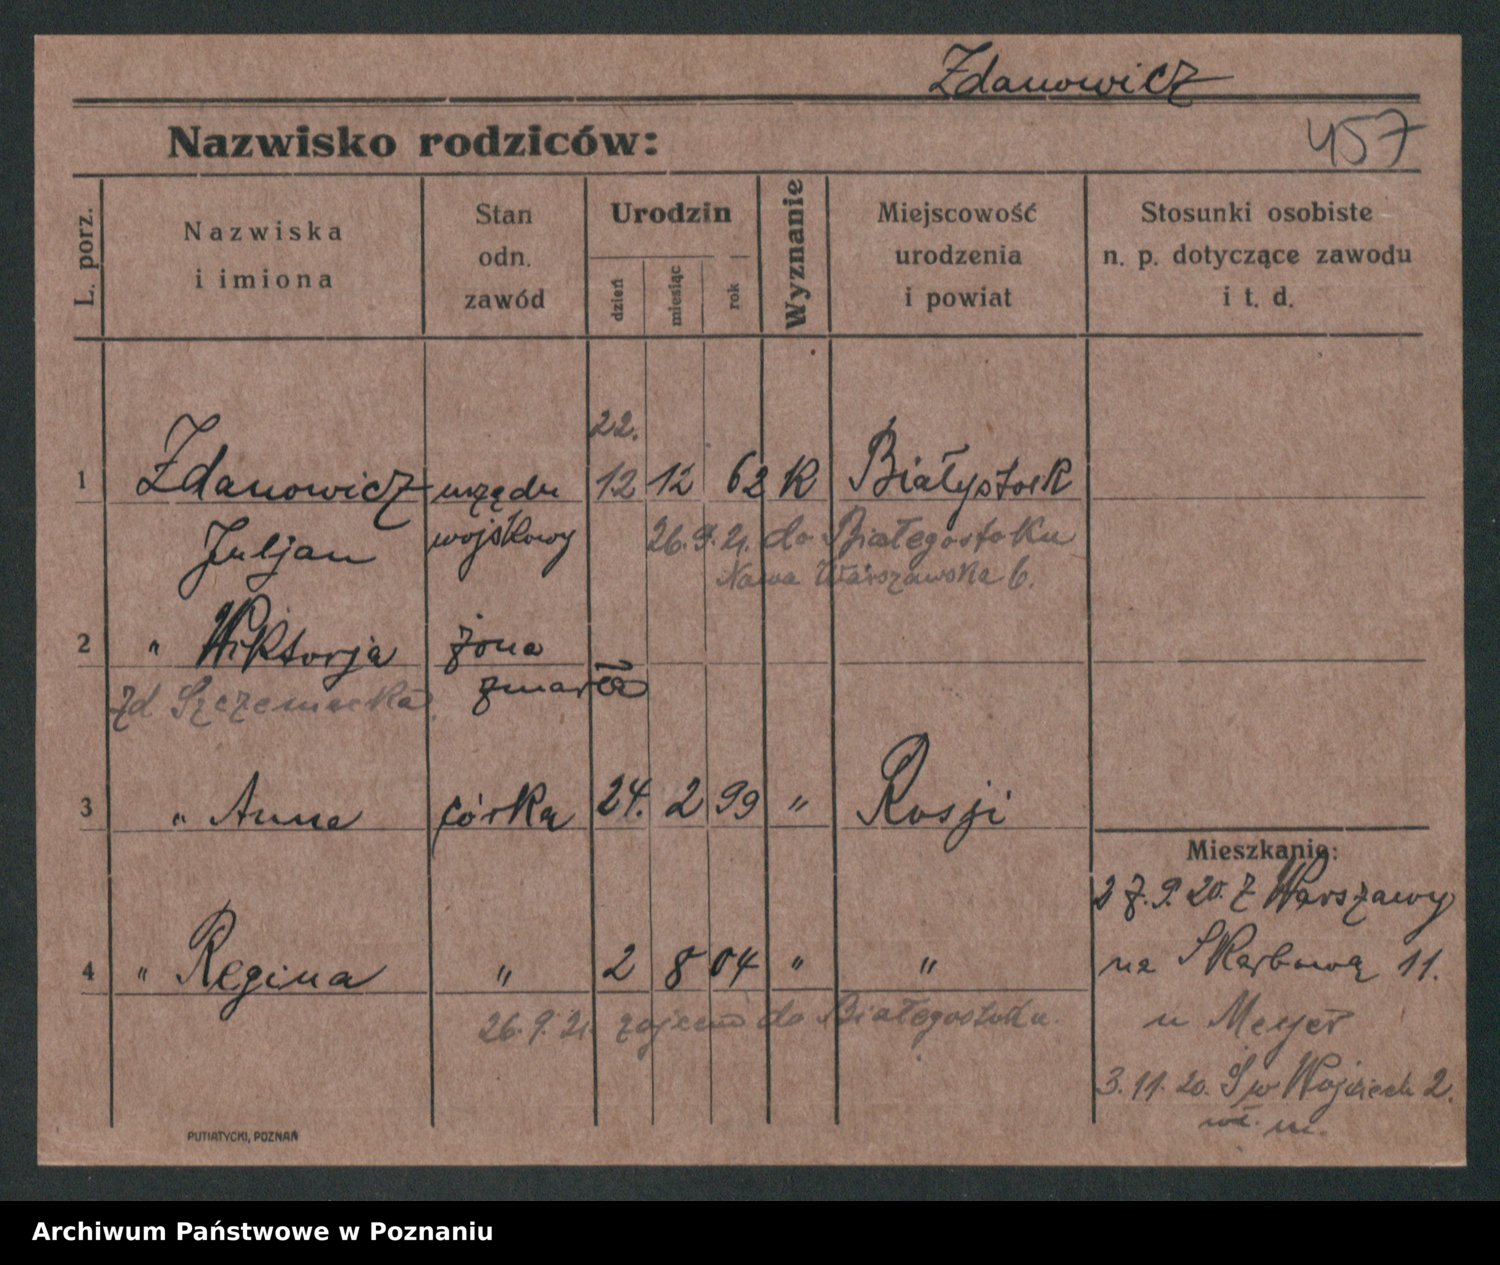 Zdanowicz
457
Nazwisko rodziców:
L. porz.
Nazwiska
i imiona
Stan
odn.
zawód
Urodzin
dzień
miesiąc
rok
Wyznanie
Miejscowość
urodzenia
i powiat
Stosunki osobiste
n. p. dotyczące zawodu
i t. d.
22.
1 Zdanowicz urzędn 12 12 62 K Białystok
Juljan wojskowy 26. 9. 21. do Białegostoku
Nowa Warszawska 6.
2 " Wiktorja żona
zd zmarła
3 " Anna córka 24. 2 99 " Rosji
Mieszkanie:
27. 9. 20. z Warszawy
4 " Regina " 2 8 04 " "
na Skarbową 11.
26. 9. 21. do Białegostoku.
u Meyer
3. 11. 20. Św Wojciech 2.
PUTIATYCKI, POZNAŃ
Archiwum Państwowe w Poznaniu